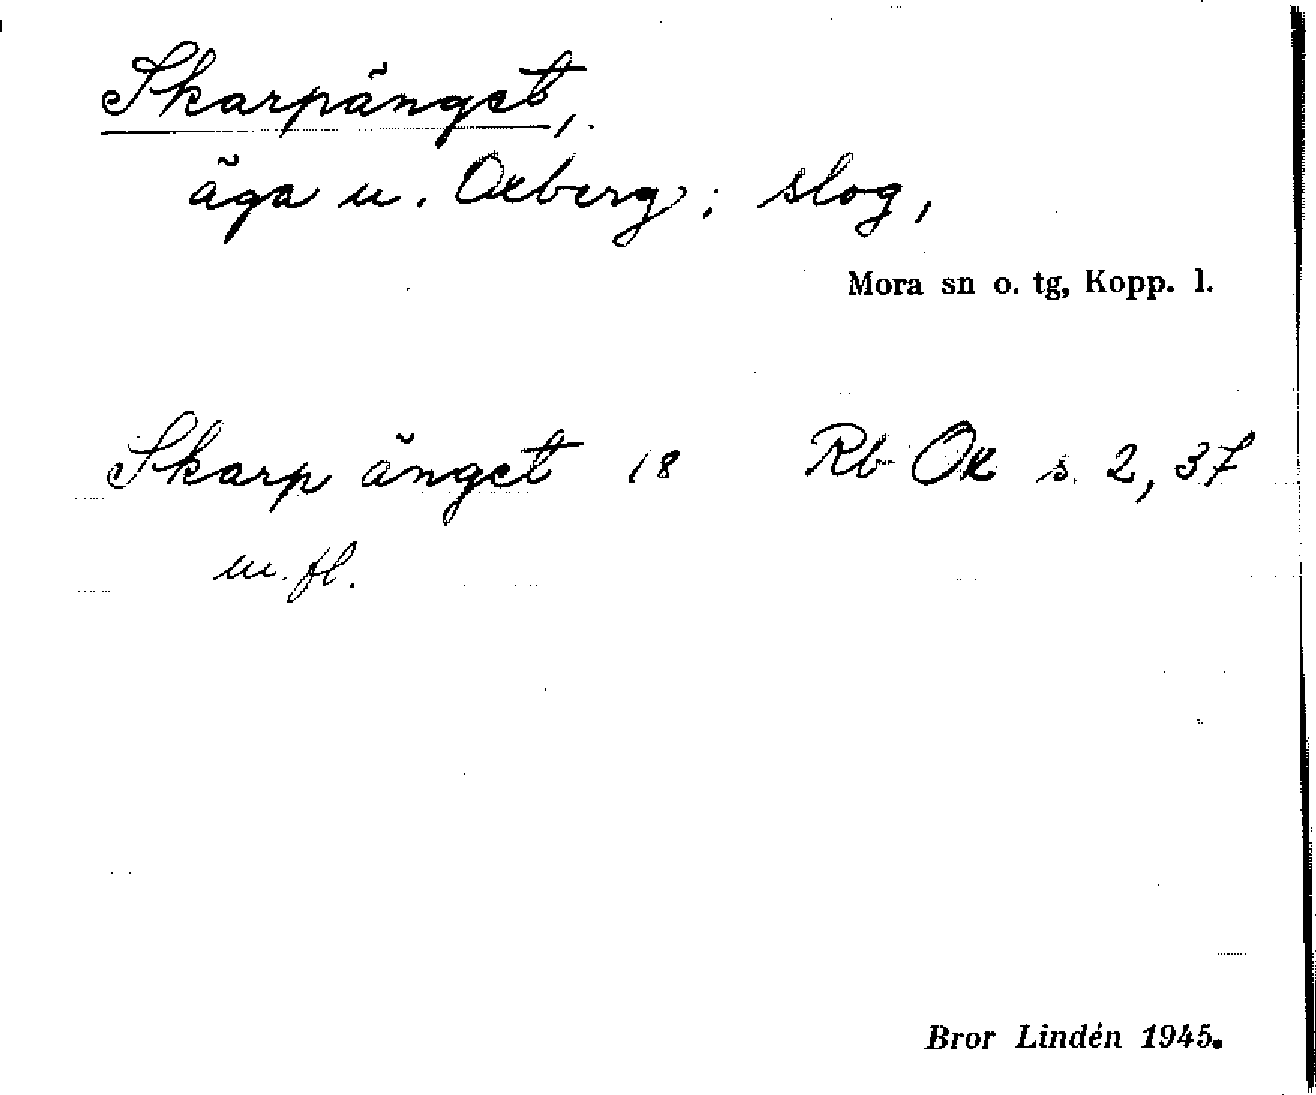 Skarpänget,
äga u. Oxberg; slog,
Mora sn o. tg, Kopp. l.
Skarp änget 18 Rb Ok s. 2, 37
m. fl.
Bror Lindén 1945.